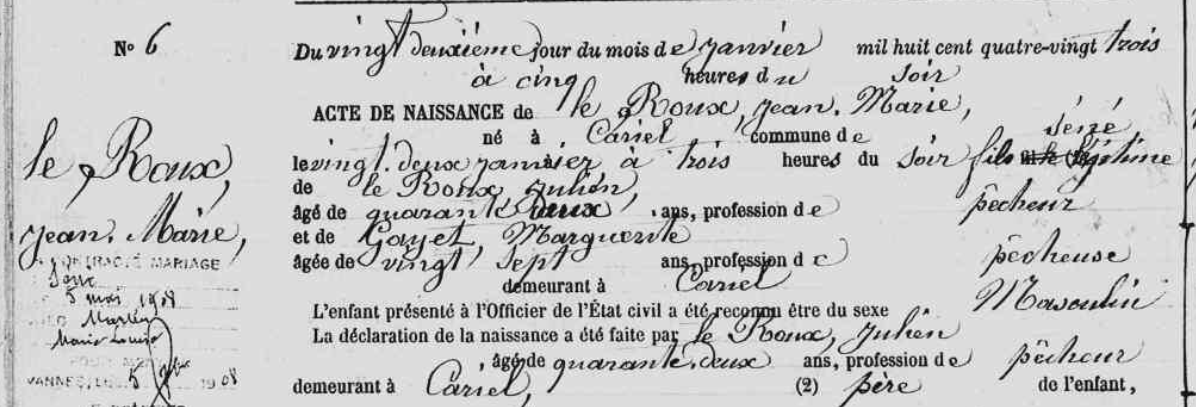 N° 6
le Roux,
Jean. Marie,
CONTRACTÉ MARIAGE
5 mai 1908
Marie Louise
VANNES, LE 5 1908
Du vingt deuxième jour du mois de janvier mil huit cent quatre-vingt trois
à cinq heures du soir
ACTE DE NAISSANCE de le Roux, Jean. Marie,
né à Cariel commune de Séné
le vingt. deux janvier à trois heures du soir fils légitime
de le Roux, Julien,
âgé de quarante deux ans, profession de pêcheur
et de Gayet, Marguerite
âgée de vingt sept ans, profession de pêcheuse
demeurant à Cariel
L'enfant présenté à l'Officier de l'État civil a été reconnu être du sexe Masculin
La déclaration de la naissance a été faite par le Roux, Julien
, âgé de quarante. deux ans, profession de pêcheur
demeurant à Cariel, (2) père de l'enfant,